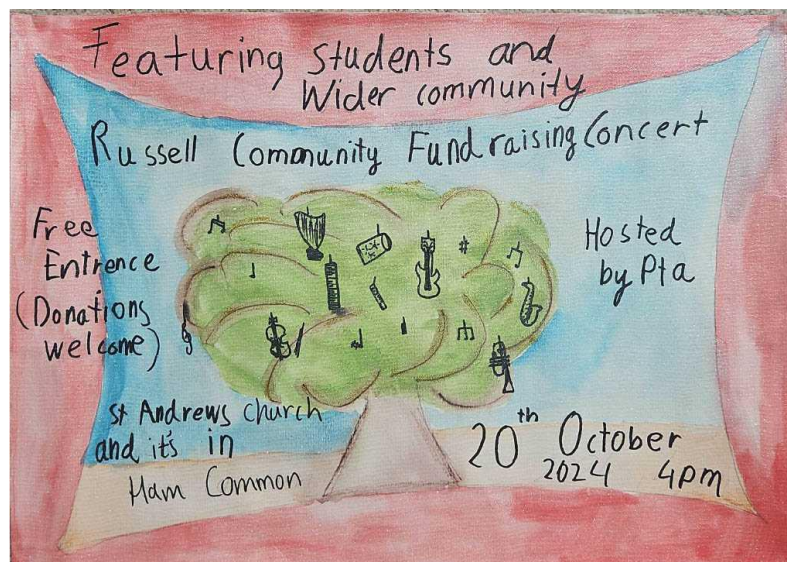 Featuring students and
Wider community
Russell Community Fundraising Concert
Free
Entrence
(Donations
welcome)
Hosted
by Pta
st Andrews church
and it's in
Ham Common
20th October
2024 4pm